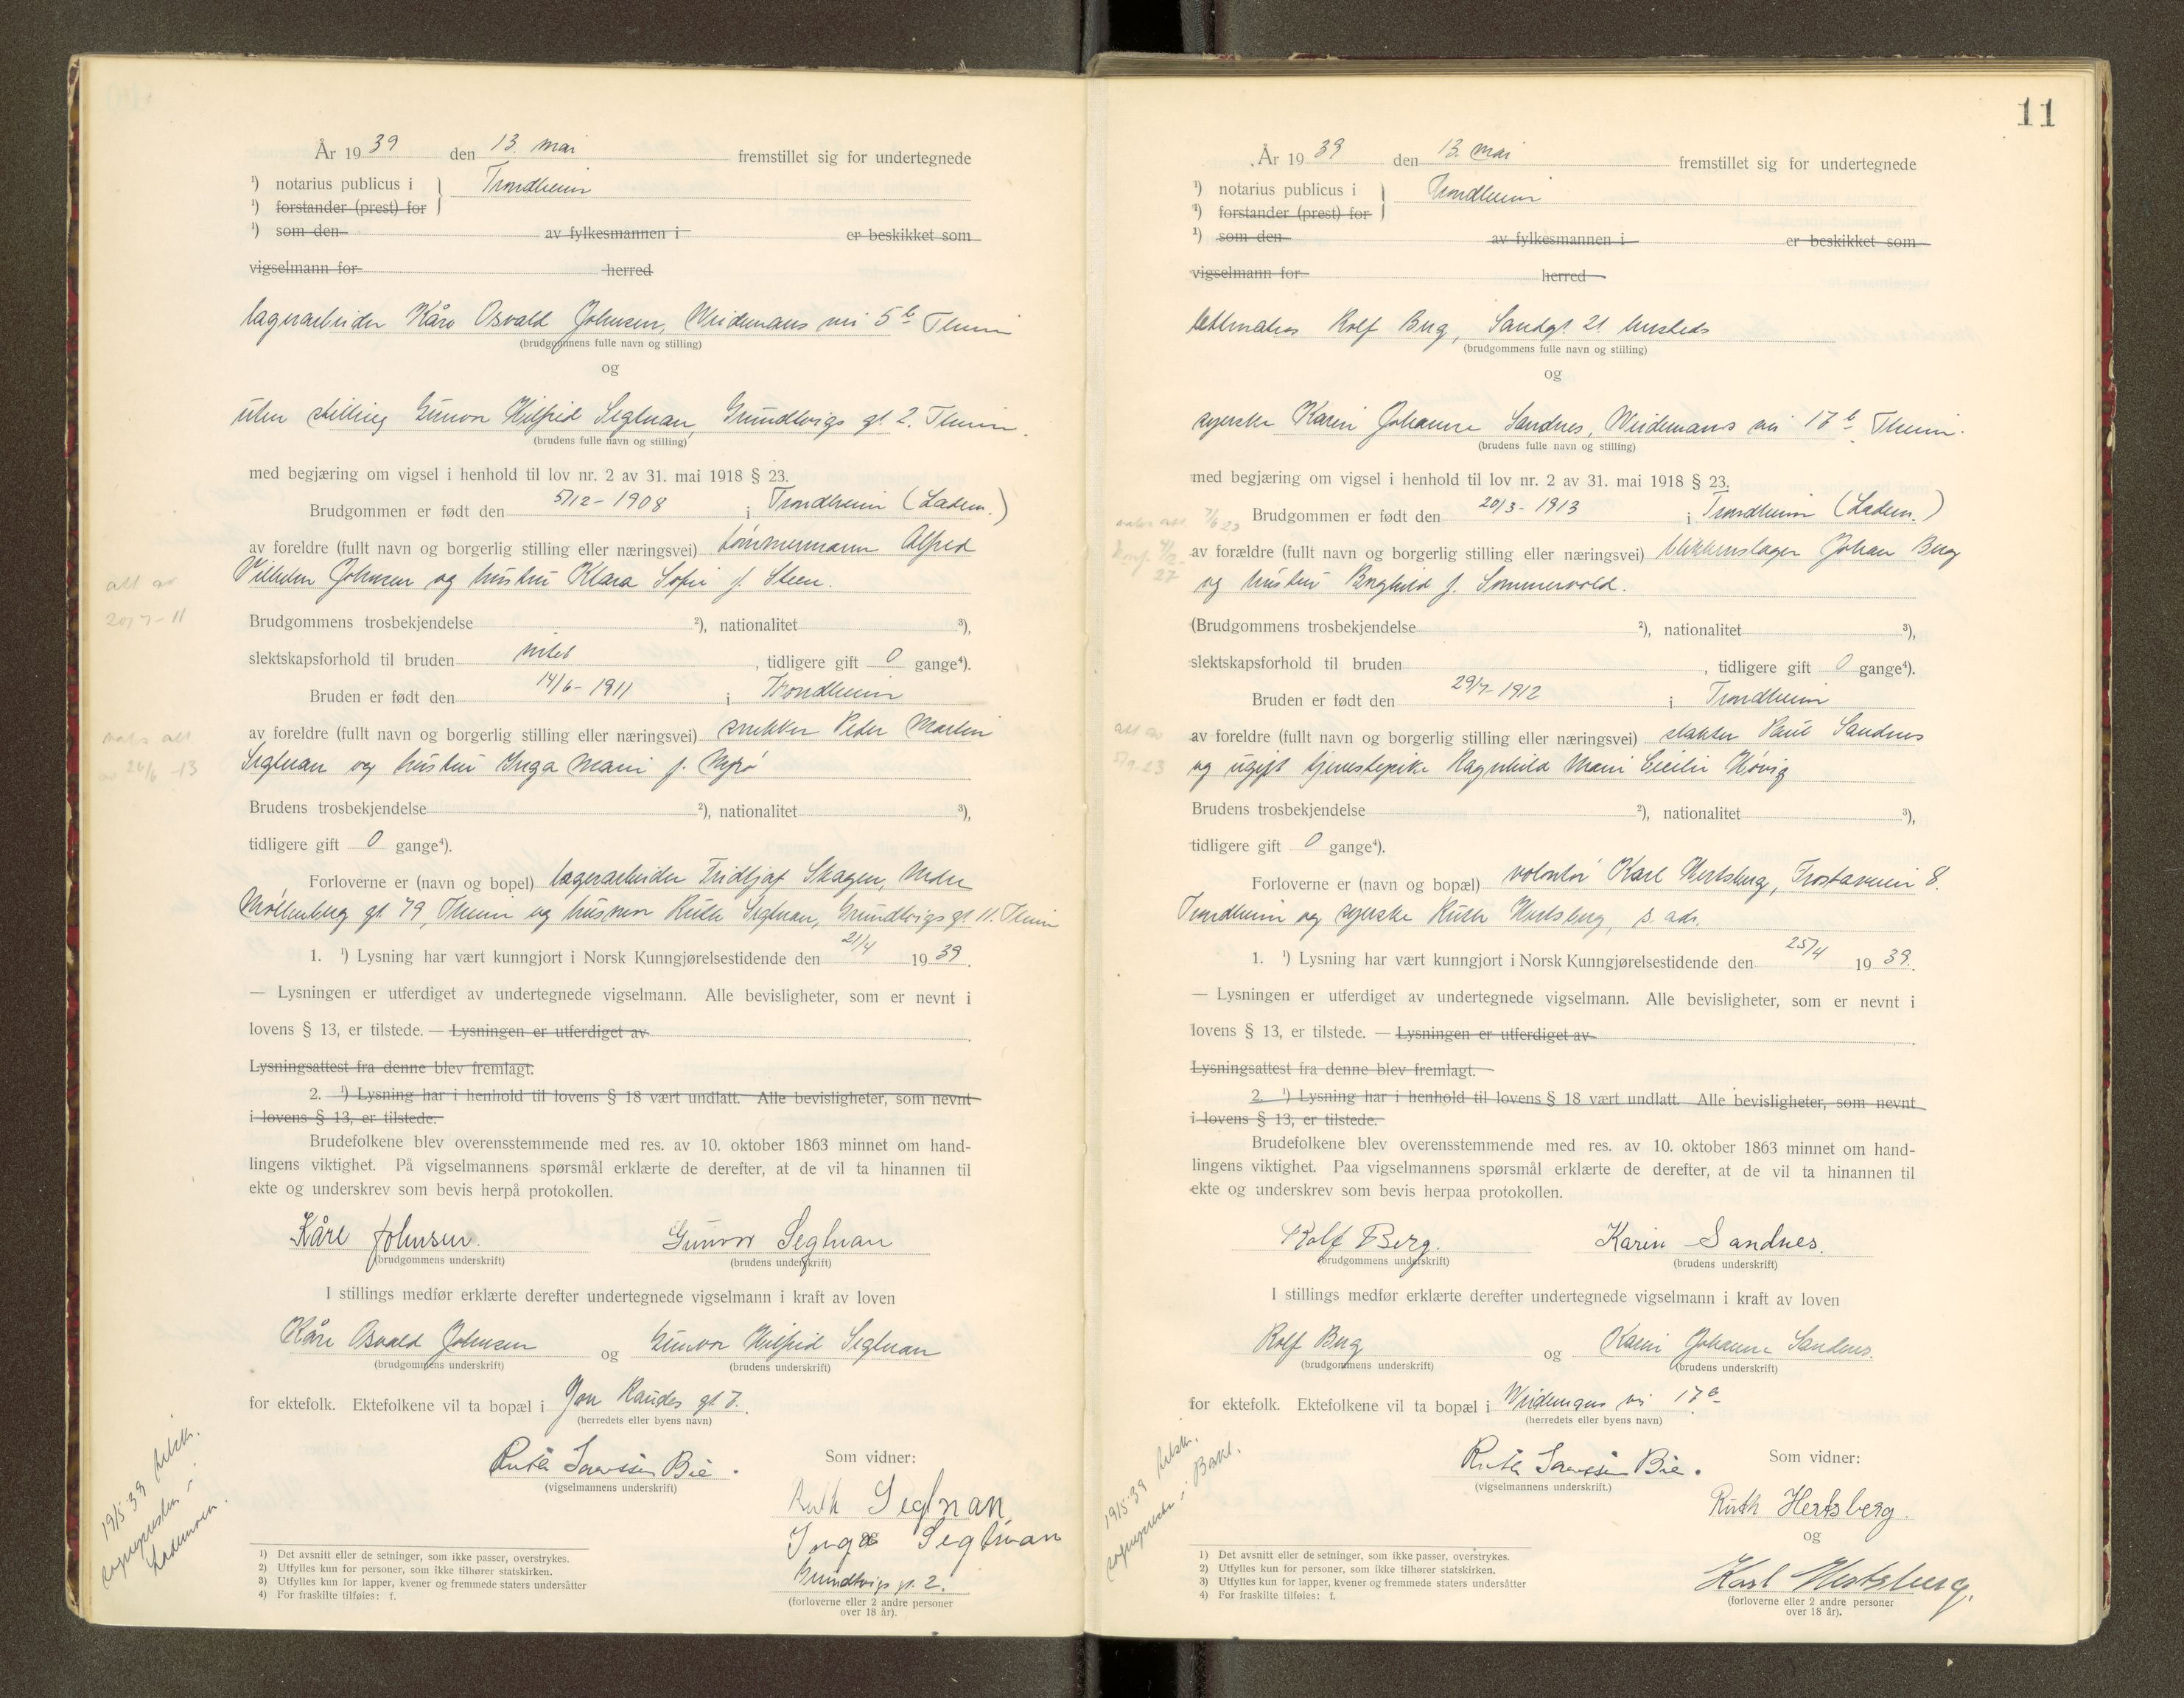 År 1939 den 13. mai fremstillet sig for undertegnede
¹) notarius publicus i } Trondheim
¹) forstander (prest) for
¹) som den av fylkesmannen i er beskikket som
vigselmann for herred
lagerarbeider Kåre Osvald Johnsen, Weidemans vei 5b Theim
(brudgommens fulle navn og stilling)
og
uten stilling Gunvor Wilfrid Segtnan, Grundtvigs gt. 2. Theim.
(brudens fulle navn og stilling)
med begjæring om vigsel i henhold til lov nr. 2 av 31. mai 1918 § 23.
Brudgommen er født den 5/12-1908 i Trondheim (Ladem.)
av foreldre (fullt navn og borgerlig stilling eller næringsvei) tømmermann Alfred
Vilhelm Johnsen og hustru Klara Sofie f. Steen.
att av
20/7-11
Brudgommens trosbekjendelse ²), nationalitet ³),
slektskapsforhold til bruden intet, tidligere gift 0 gange⁴).
Bruden er født den 14/6-1911 i Trondheim
av foreldre (fullt navn og borgerlig stilling eller næringsvei) snekker Peder Martin
Segtnan og hustru Inga Marie f. Myrø
att
av 26/6-13
Brudens trosbekjendelse ²), nationalitet ³),
tidligere gift 0 gange⁴).
Forloverne er (navn og bopel) lagerarbeider Fridtjof Skagen, Nedre
Møllenberg gt. 79, Theim og husmor Ruth Segtnan, Grundtvigs gt. 11. Theim
1. ¹) Lysning har vært kunngjort i Norsk Kunngjørelsestidende den 21/4 1939.
— Lysningen er utferdiget av undertegnede vigselmann. Alle bevisligheter, som er nevnt i
lovens § 13, er tilstede. — Lysningen er utferdiget av .
Lysningsattest fra denne blev fremlagt.
2. ¹) Lysning har i henhold til lovens § 18 vært undlatt. Alle bevisligheter, som nevnt
i lovens § 13, er tilstede.
Brudefolkene blev overensstemmende med res. av 10. oktober 1863 minnet om hand-
lingens viktighet. På vigselmannens spørsmål erklærte de derefter, at de vil ta hinannen til
ekte og underskrev som bevis herpå protokollen.
Kåre Johnsen. Gunvor Segtnan
(brudgommens underskrift) (brudens underskrift)
I stillings medfør erklærte derefter undertegnede vigselmann i kraft av loven
Kåre Osvald Johnsen og Gunvor Wilfrid Segtnan
(brudgommens underskrift) (brudens underskrift)
for ektefolk. Ektefolkene vil ta bopæl i Jon Raudes gt 7.
(herredets eller byens navn)
Ruth Sørenssen Bie.
(vigselmannens underskrift)
Som vidner:
Ruth Segtnan
og
Inga Segtnan
Grundtvigs gt. 2.
(forloverne eller 2 andre personer
over 18 år).
19/5-39 utskr.
sognepresten i
Lademoen.
1) Det avsnitt eller de setninger, som ikke passer, overstrykes.
2) Utfylles kun for personer, som ikke tilhører statskirken.
3) Utfylles kun for lapper, kvener og fremmede staters undersåtter
4) For fraskilte tilføies: f.
11
År 1939 den 13. mai fremstillet sig for undertegnede
¹) notarius publicus i } Trondheim
¹) forstander (prest) for
¹) som den av fylkesmannen i er beskikket som
vigselmann for herred
lettmatros Rolf Berg, Sandgt. 21 husteds
(brudgommens fulle navn og stilling)
og
syerske Karin Johanne Sandnes, Weidemans vei 17b, Theim.
(brudens fulle navn og stilling)
med begjæring om vigsel i henhold til lov nr. 2 av 31. mai 1918 § 23.
Brudgommen er født den 20/3-1913 i Trondheim (Ladem.)
av forældre (fullt navn og borgerlig stilling eller næringsvei) blikkenslager Johan Berg
og hustru Borghild f. Sommervold.
att. 7/6 23
konf. 4/12-
27
(Brudgommens trosbekjendelse ²), nationalitet ³),
slektskapsforhold til bruden , tidligere gift 0 gange⁴).
Bruden er født den 29/7-1912 i Trondheim
av foreldre (fullt navn og borgerlig stilling eller næringsvei) slakter Paul Sandnes
og ugift tjenestepike Ragnhild Marie Cecilie Høvig
att av
5/9.23
Brudens trosbekjendelse ²), nationalitet ³),
tidligere gift 0 gange⁴).
Forloverne er (navn og bopæl) volontør Karl Hertsberg, Frostaveien 8.
Trondheim og syerske Ruth Hertsberg, s. adr.
1. ¹) Lysning har vært kunngjort i Norsk Kunngjørelsestidende den 25/4 1939.
— Lysningen er utferdiget av undertegnede vigselmann. Alle bevisligheter, som er nevnt i
lovens § 13, er tilstede. — Lysningen er utferdiget av .
Lysningsattest fra denne blev fremlagt.
2. ¹) Lysning har i henhold til lovens § 18 vært undlatt. Alle bevisligheter, som nevnt
i lovens § 13, er tilstede.
Brudefolkene blev overensstemmende med res. av 10. oktober 1863 minnet om hand-
lingens viktighet. Paa vigselmannens spørsmål erklærte de derefter, at de vil ta hinannen til
ekte og underskrev som bevis herpaa protokollen.
Rolf Berg. Karin Sandnes.
(brudgommens underskrift) (brudens underskrift)
I stillings medfør erklærte derefter undertegnede vigselmann i kraft av loven
Rolf Berg og Karin Johanne Sandnes.
(brudgommens underskrift) (brudens underskrift)
for ektefolk. Ektefolkene vil ta bopæl i Weidemans vei 17b
(herredets eller byens navn)
Ruth Sørenssen Bie.
(vigselmannens underskrift.)
Som vidner:
Ruth Hertsberg.
og
Karl Hertsberg.
(forloverne eller 2 andre personer
over 18 år).
19/5-39 utskr.
sogneprest i Bakl.
1) Det avsnitt eller de setninger, som ikke passer, overstrykes.
2) Utfylles kun for personer, som ikke tilhører statskirken.
3) Utfylles kun for lapper, kvener og fremmede staters undersåtter
4) For fraskilte tilføies: f.